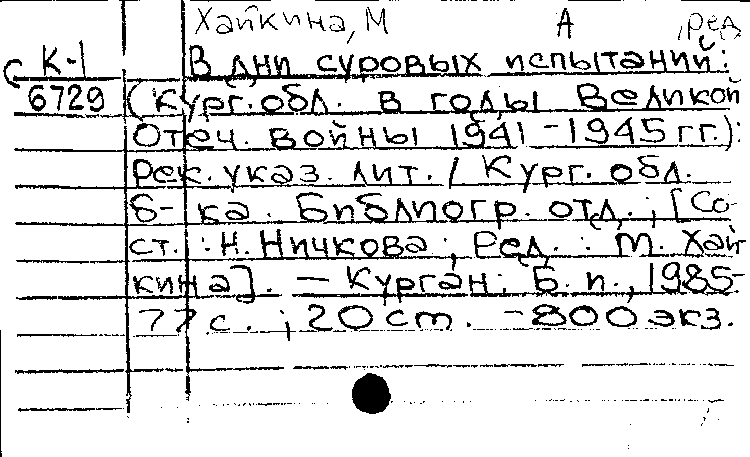 Хайкина, М А , ред
К-1 В дни суровых испытаний:
6729 (Кург. обл. в годы Великой
Отеч. войны 1941-1945 гг.):
Рек. указ. лит. / Кург. обл.
б-ка. Библиогр. отд.; [Со-
ст.: Н. Ничкова; Ред.: М. Хай
кина]. — Курган: Б. и., 1985-
77 с.; 20 см. -800 экз.